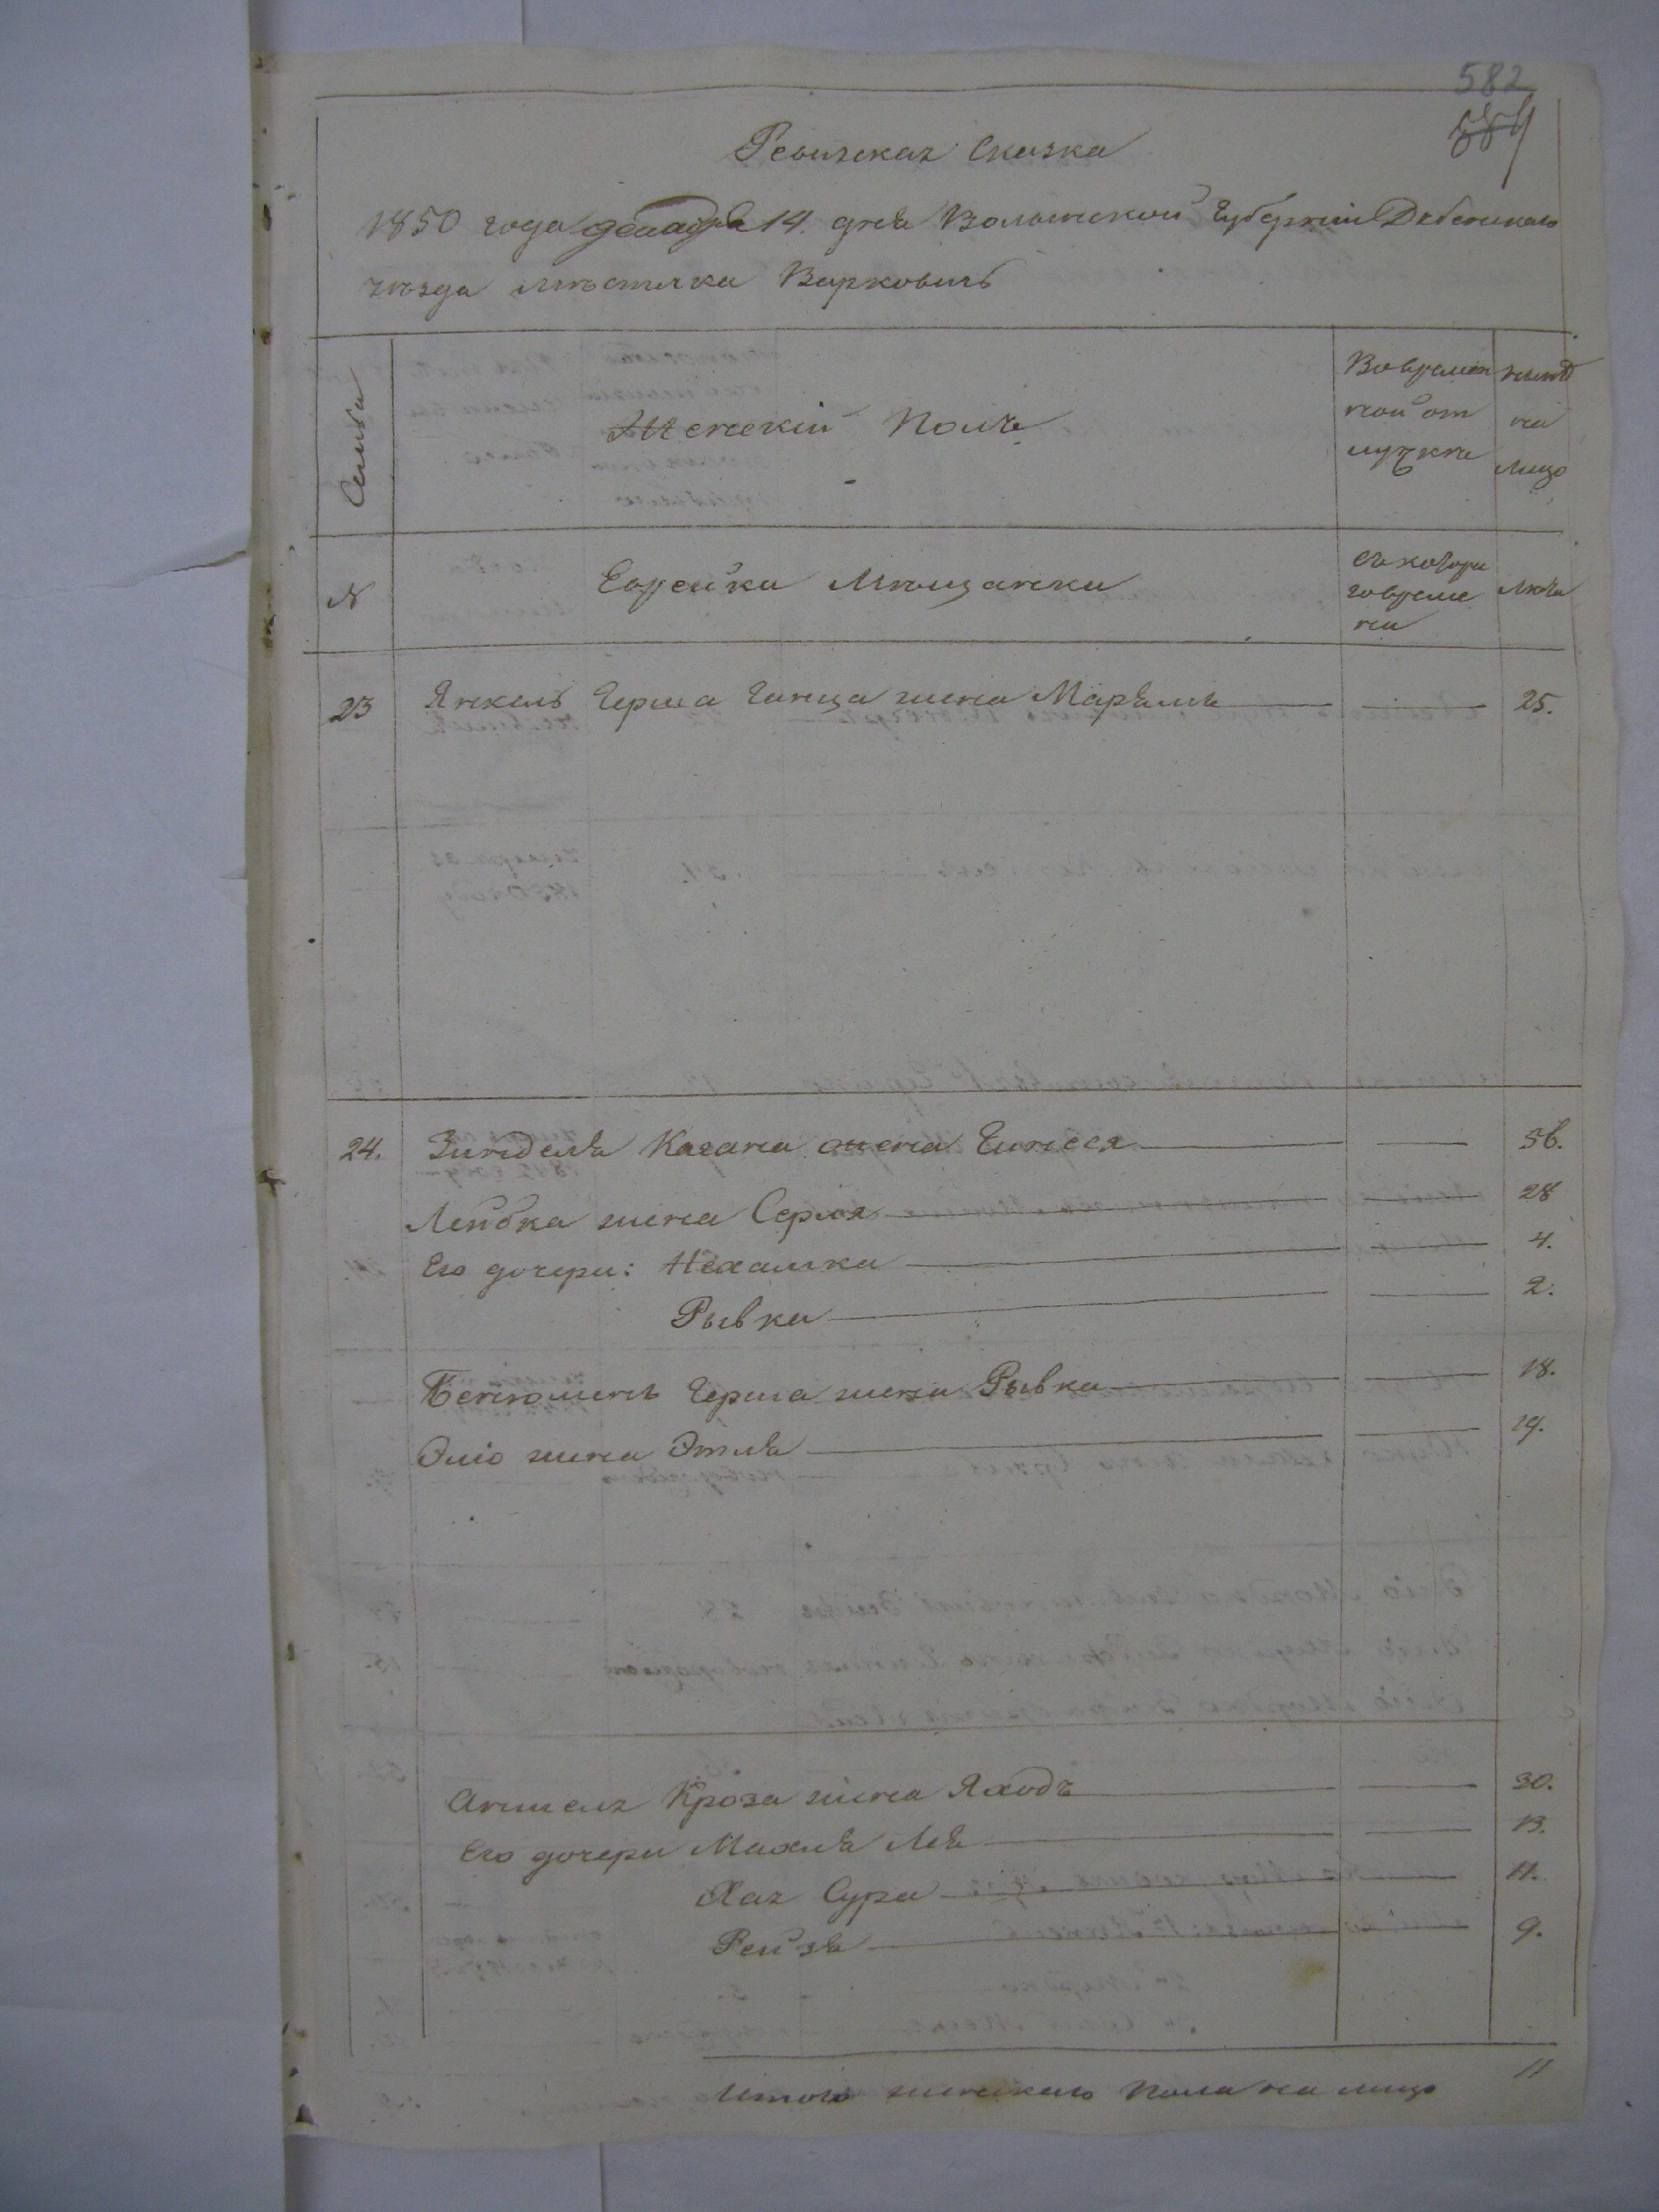 582
Ревизская Сказка
1850 года декабря 14. дня Волынской Губернии Дубенскаго
уѣзда мѣстечка Варковичь
Семья
Женский Полъ
Во времен
ной от
лучке
ныне
на
лицо
№
Еврейки Мѣщанки
съ котора
го време
ни
Лѣта
23 Янкель Герша Ганца жена Марьямъ 25.
24. Зинделя Кагана жена Гинеся 56.
Лейбка жена Серля 28
Его дочери: Нехамка 4.
Рывка 2.
Бениоминъ Герша жена Рывка 18.
Элio жена Этля 19.
Аншеля Кроза жена Яходъ 30.
Его дочери Махля Лея 13.
Хая Сура 11.
Рейзя 9.
Итого женскаго пола на лицо 11